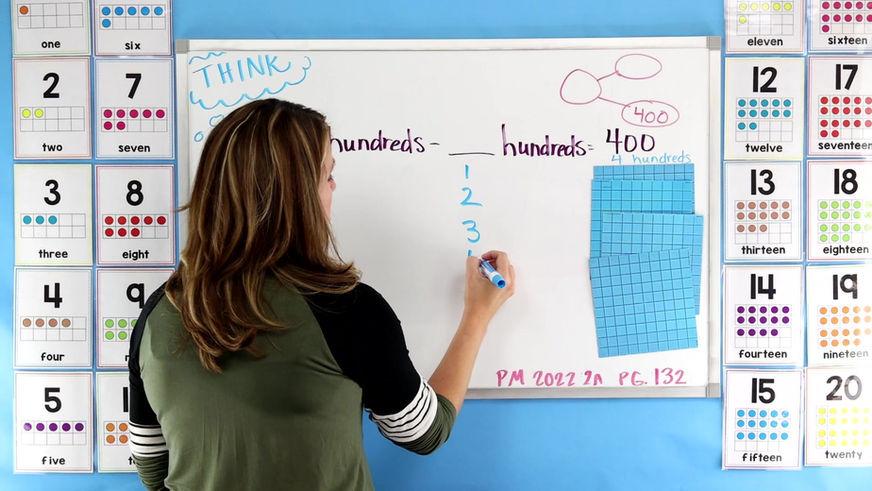 one
six
eleven
sixteen
THINK
2
7
two
seven
400
12
17
twelve
seventeen
hundreds - ___ hundreds = 400
4 hundreds
1
2
3
3
8
three
eight
13
18
thirteen
eighteen
4
9
four
14
19
fourteen
nineteen
5
five
15
20
fifteen
twenty
PM 2022 2A PG. 132